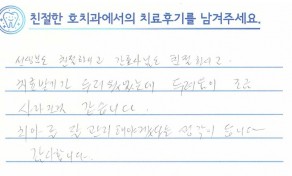 친절한 호치과에서의 치료후기를 남겨주세요.
선생님도 친절하시고 간호사님도 친절하시고
치료받기가 무서웠었는데 두려움이 조금
사라진거 같습니다.
치아를 잘 관리해야겠다는 생각이 듭니다
감사합니다.